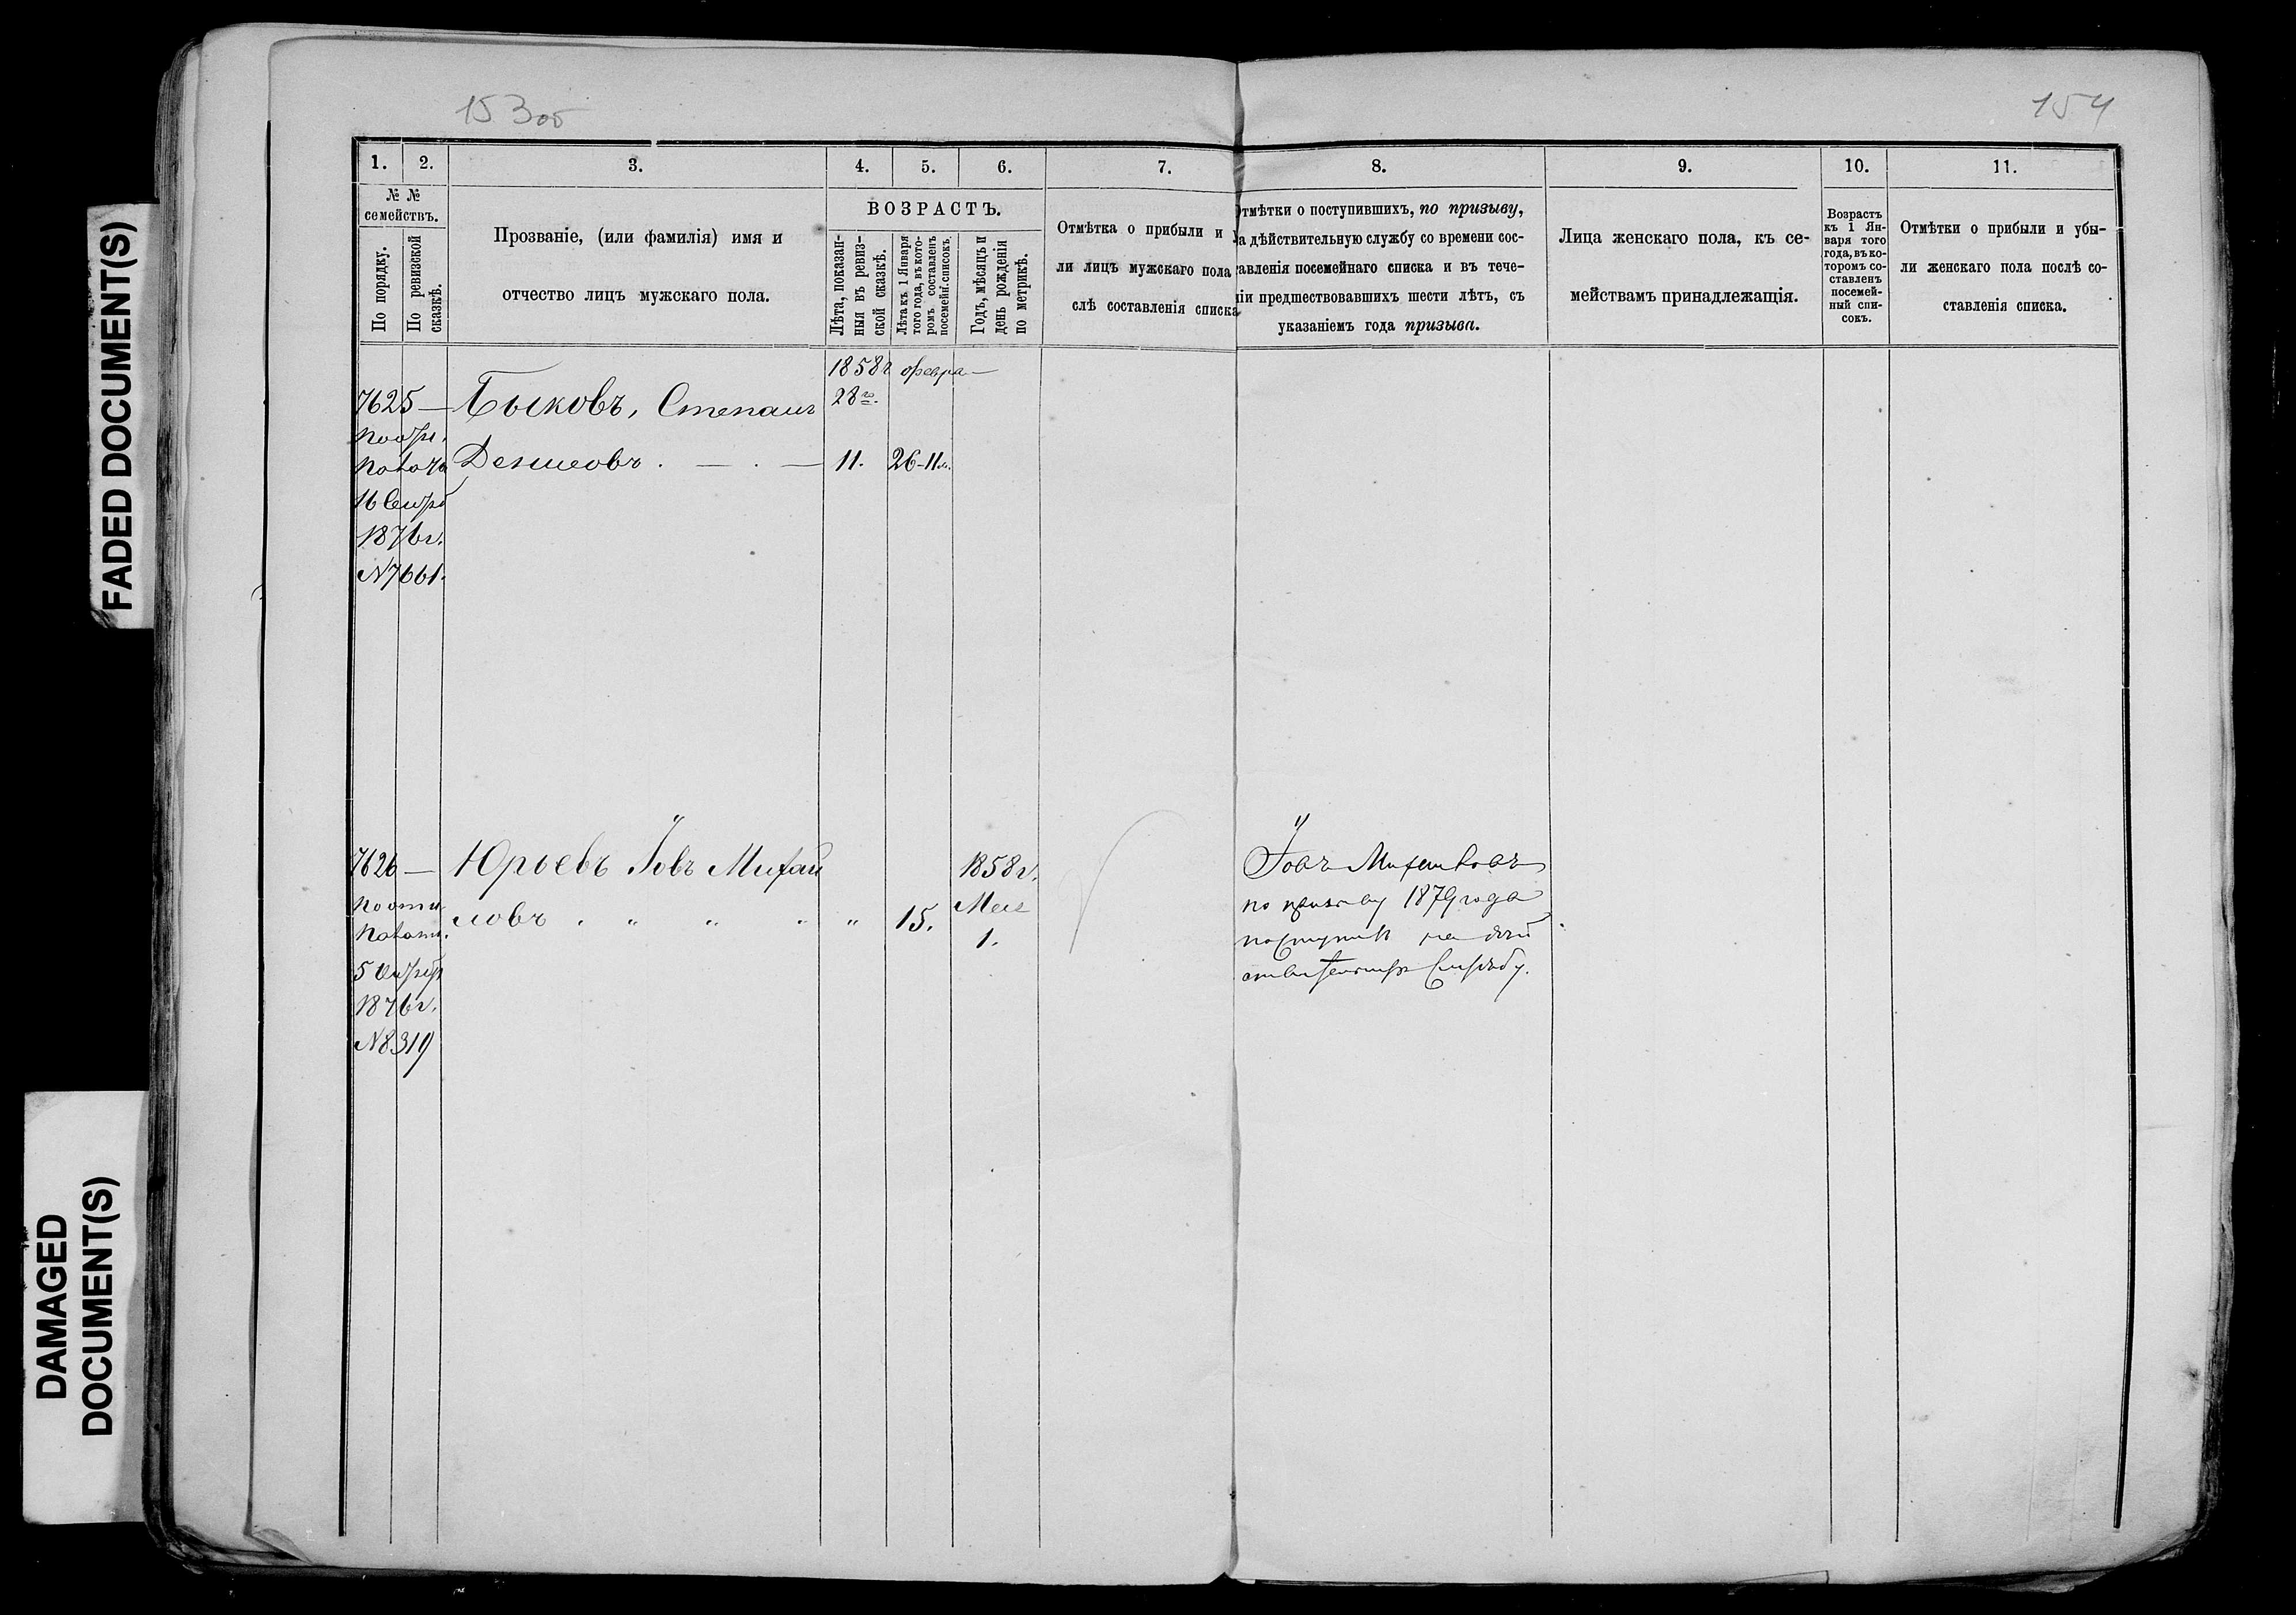 FADED DOCUMENT(S)
DAMAGED
DOCUMENT(S)
153об
154
1.
2.
3.
4.
5.
6.
7.
8.
9.
10.
11.
№ №
семействъ.
По порядку.
По ревизской
сказкѣ.
Прозваніе, (или фамилія) имя и
отчество лицъ мужскаго пола.
ВОЗРАСТЪ.
Лѣта, показан-
ныя въ ревиз-
ской сказкѣ.
Лѣта къ 1 Января
того года, въ кото-
ромъ составленъ
посемейн. списокъ.
Годъ, мѣсяцъ и
день рожденія
по метрикѣ.
Отмѣтка о прибыли и у
ли лицъ мужскаго пола
слѣ составленія списка
Отмѣтки о поступившихъ, по призыву,
на дѣйствительную службу со времени сос-
тавленія посемейнаго списка и въ тече-
ніи предшествовавшихъ шести лѣтъ, съ
указаніемъ года призыва.
Лица женскаго пола, къ се-
мействамъ принадлежащія.
Возрастъ
къ 1 Ян-
варя того
года, въ ко-
торомъ со-
ставленъ
посемей-
ный спи-
сокъ.
Отмѣтки о прибыли и убы-
ли женскаго пола послѣ со-
ставленія списка.
1858г февра—
7625 — Быковъ, Степанъ 28го.
11. 26-11м.
16
1876г.
N7661.
7626 — Юрьевъ Іовъ Михай 1858г.
ловъ . " " " " 15. Мая
1.
5
1876г.
N8319
Іовъ Михайловъ
по призыву 1879 года
поступилъ на дѣй
ствительную службу.